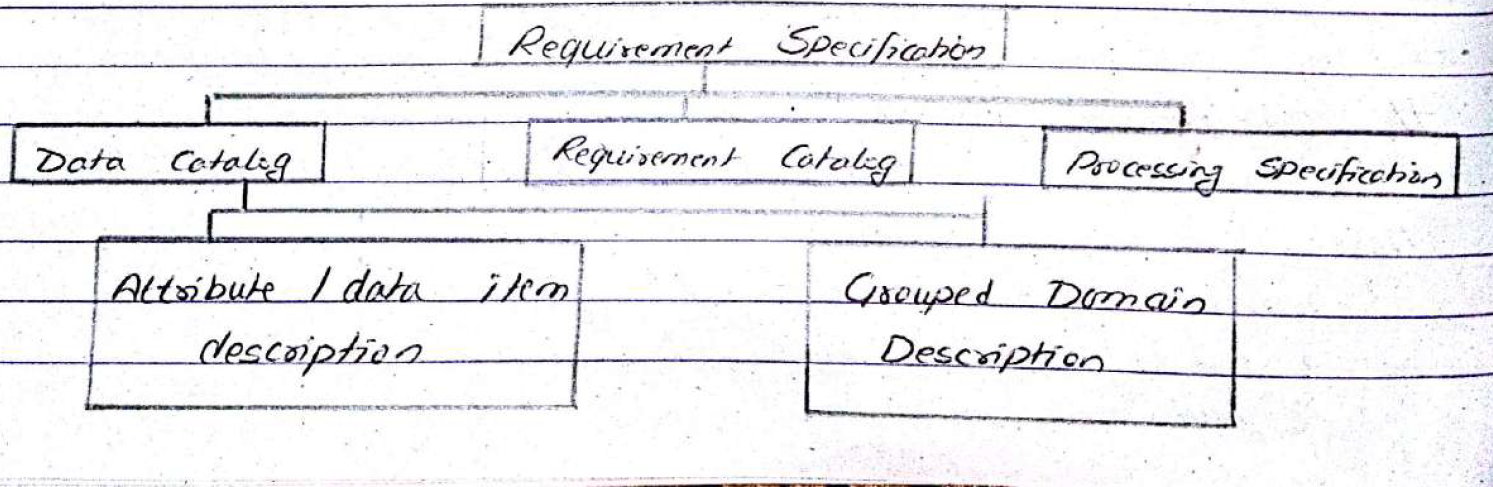 Requirement Specification
Data Catalog
Requirement Catalog
Processing Specification
Attribute / data item
description
Grouped Domain
Description